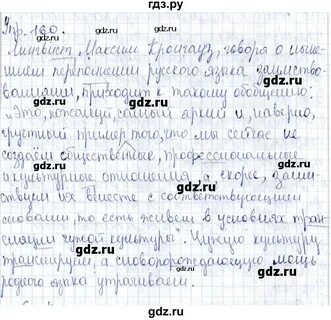 гдз.ру
Упр. 160.
Лингвист Максим Кронгауз, говоря о ныне-
шнем переполнении русского языка заимство-
ваниями, приходит к такому обобщению:
„Это, пожалуй, самый яркий и, наверно,
грустный пример того, что мы сейчас не
создаём общественные, профессиональные
и культурные отношения, а, скорее, заим-
ствуем их вместе с соответствующими
словами, то есть живём в условиях тран-
сляции чужой культуры". Чужую культуру
транслируем, а словопорождающую мощь
родного языка утрачиваем.
gdz.ru
gdz.ru
gdz.ru
gdz.ru
gdz.ru
gdz.ru
gdz.ru
gdz.ru
gdz.ru
gdz.ru
gdz.ru
gdz.ru